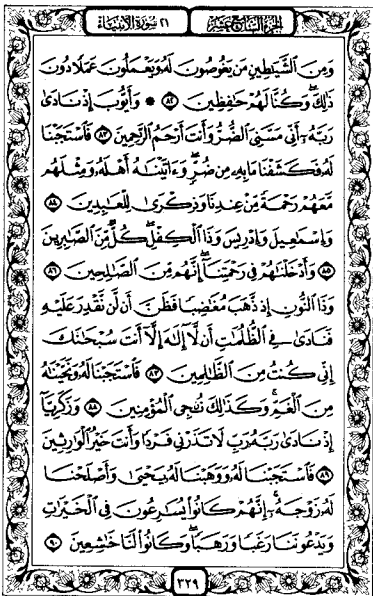 الجزء السابع عشر
٢١ سورة الأنبياء
وَمِنَ الشَّيَاطِينِ مَن يَغُوصُونَ لَهُ وَيَعْمَلُونَ عَمَلًا دُونَ
ذَٰلِكَ ۖ وَكُنَّا لَهُمْ حَافِظِينَ ٨٢ * وَأَيُّوبَ إِذْ نَادَىٰ
رَبَّهُ أَنِّي مَسَّنِيَ الضُّرُّ وَأَنتَ أَرْحَمُ الرَّاحِمِينَ ٨٣ فَاسْتَجَبْنَا
لَهُ فَكَشَفْنَا مَا بِهِ مِن ضُرٍّ ۖ وَءَاتَيْنَاهُ أَهْلَهُ وَمِثْلَهُم
مَّعَهُمْ رَحْمَةً مِّنْ عِندِنَا وَذِكْرَىٰ لِلْعَابِدِينَ ٨٤
وَإِسْمَاعِيلَ وَإِدْرِيسَ وَذَا الْكِفْلِ ۖ كُلٌّ مِّنَ الصَّابِرِينَ
٨٥ وَأَدْخَلْنَاهُمْ فِي رَحْمَتِنَا ۖ إِنَّهُم مِّنَ الصَّالِحِينَ ٨٦
وَذَا النُّونِ إِذ ذَّهَبَ مُغَاضِبًا فَظَنَّ أَن لَّن نَّقْدِرَ عَلَيْهِ
فَنَادَىٰ فِي الظُّلُمَاتِ أَن لَّا إِلَٰهَ إِلَّا أَنتَ سُبْحَانَكَ
إِنِّي كُنتُ مِنَ الظَّالِمِينَ ٨٧ فَاسْتَجَبْنَا لَهُ وَنَجَّيْنَاهُ
مِنَ الْغَمِّ ۚ وَكَذَٰلِكَ نُنجِي الْمُؤْمِنِينَ ٨٨ وَزَكَرِيَّا
إِذْ نَادَىٰ رَبَّهُ رَبِّ لَا تَذَرْنِي فَرْدًا وَأَنتَ خَيْرُ الْوَارِثِينَ
٨٩ فَاسْتَجَبْنَا لَهُ وَوَهَبْنَا لَهُ يَحْيَىٰ وَأَصْلَحْنَا
لَهُ زَوْجَهُ ۚ إِنَّهُمْ كَانُوا يُسَارِعُونَ فِي الْخَيْرَاتِ
وَيَدْعُونَنَا رَغَبًا وَرَهَبًا ۖ وَكَانُوا لَنَا خَاشِعِينَ ٩٠
٣٢٩